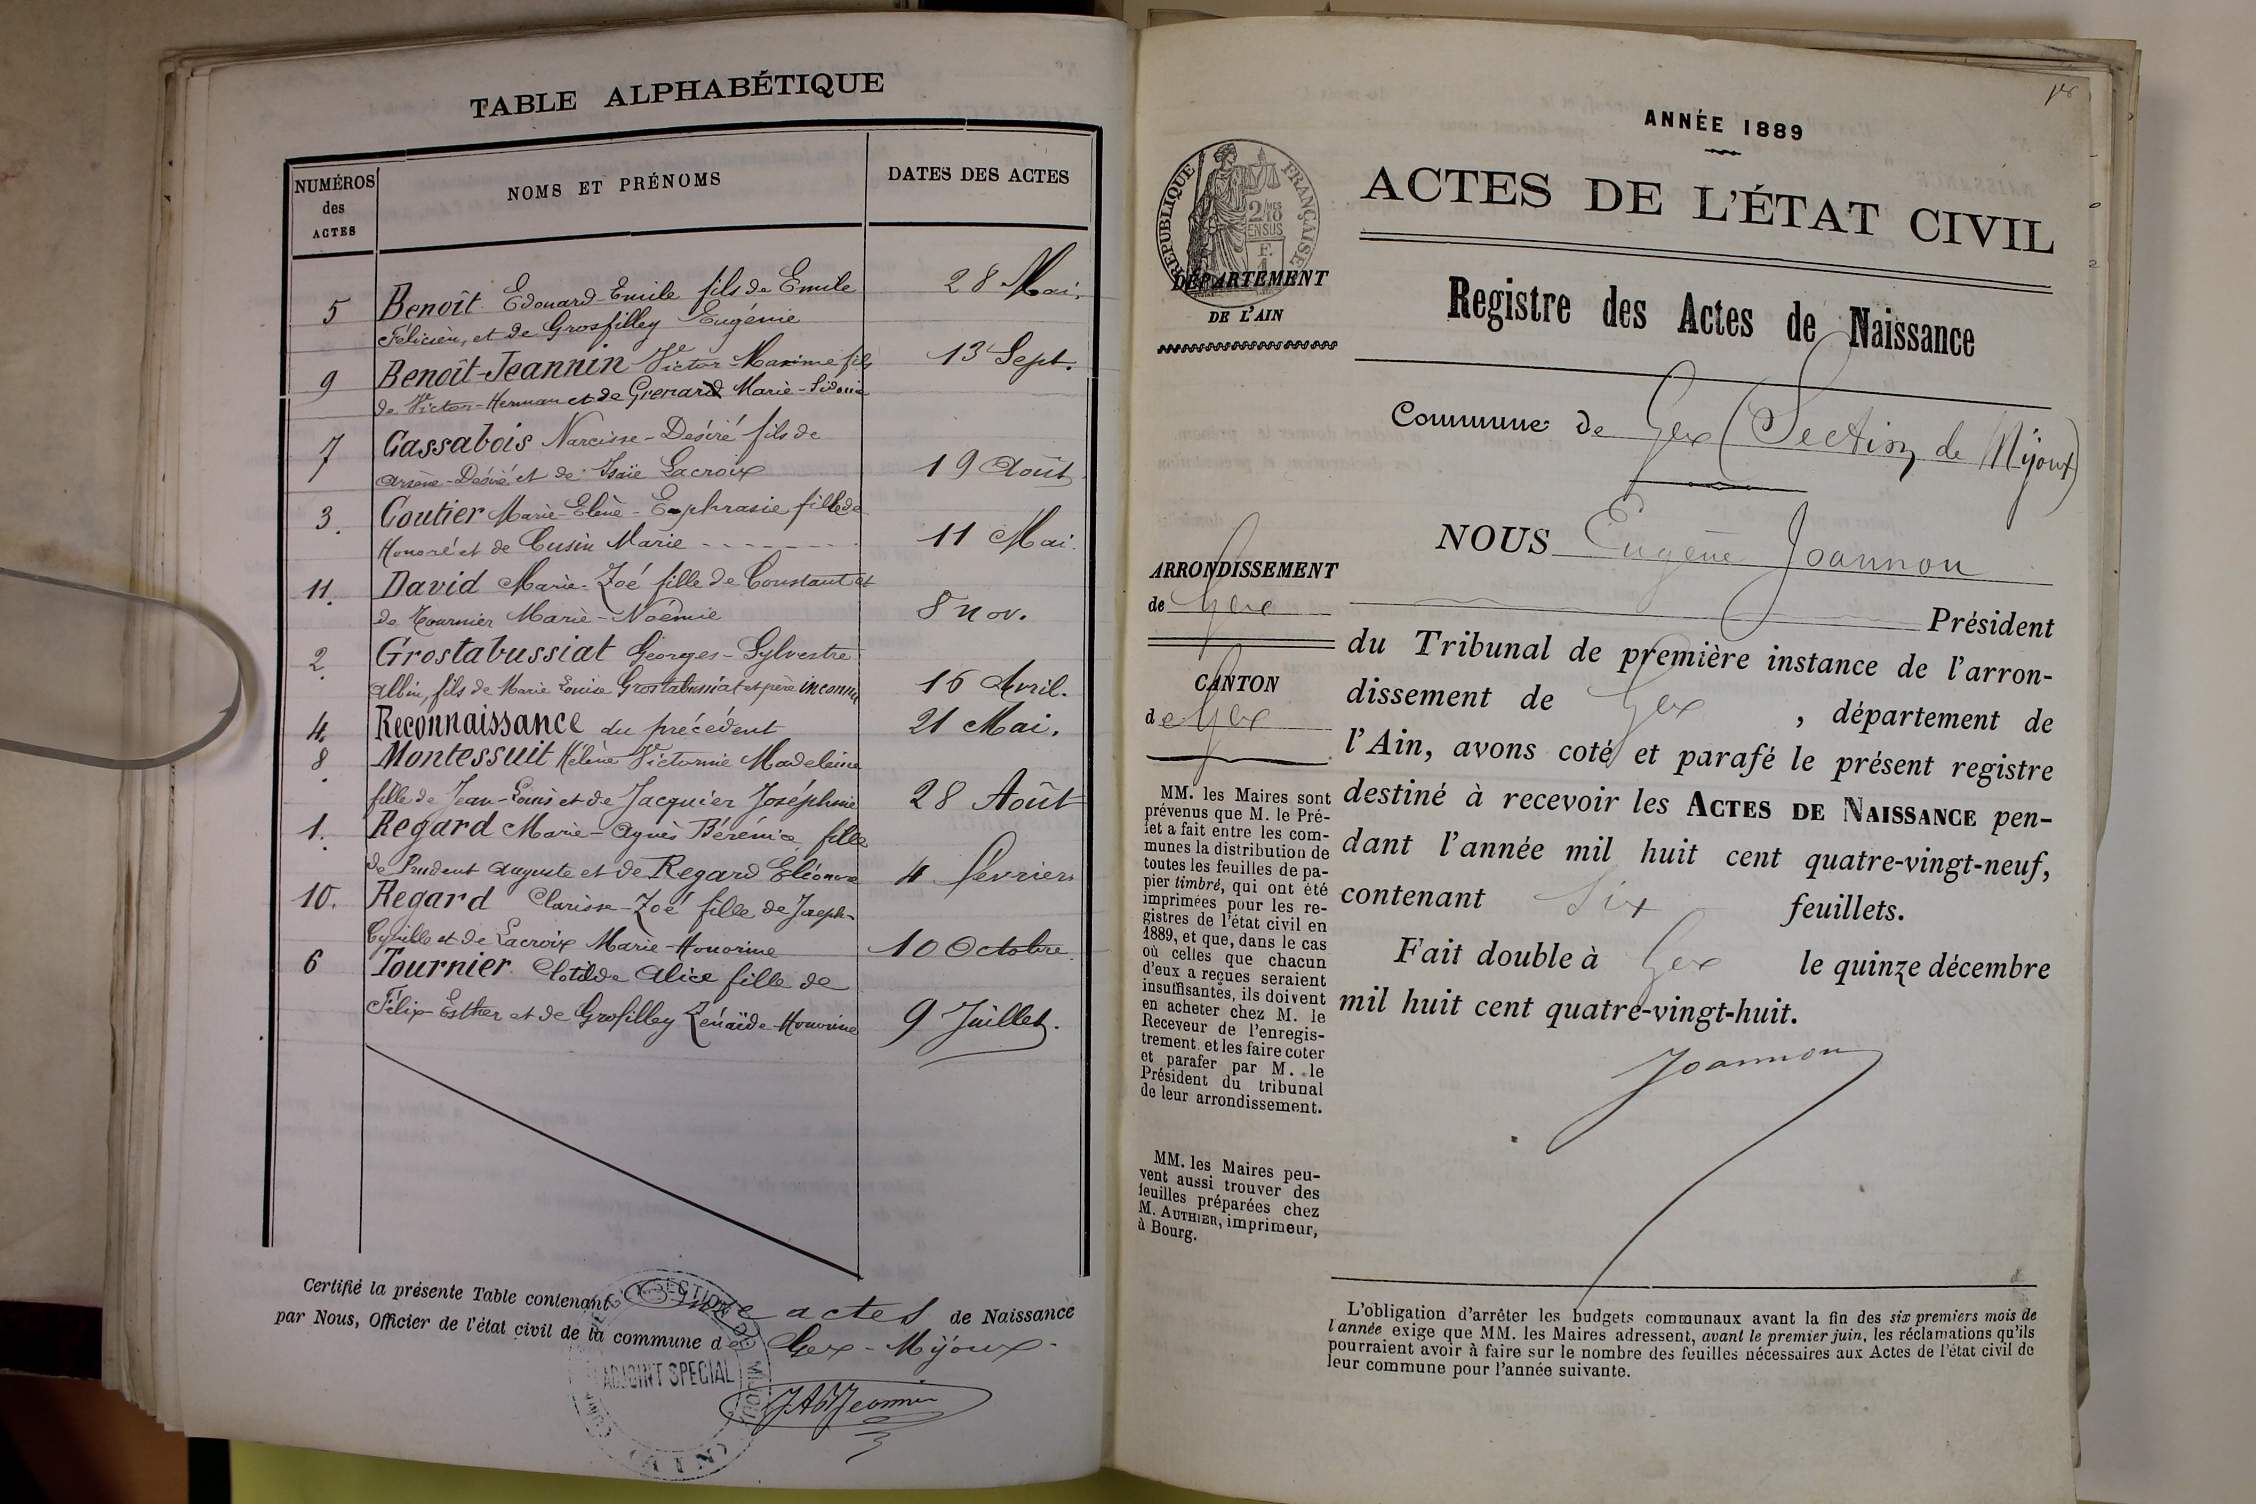 TABLE ALPHABÉTIQUE
NUMÉROS des ACTES
NOMS ET PRÉNOMS
DATES DES ACTES
5 Benoît Edouard-Emile fils de Emile 28 Mai.
Félicien, et de Grosfilley Eugénie
9 Benoît-Jeannin Victor-Maxime fils 13 Sept.
de Victor-Herman et de Grenard Marie-Sidonie
7 Cassabois Narcisse-Désiré fils de
Arsène-Désiré et de Isaïe Lacroix 19 Août
3. Coutier Marie-Elène-Euphrasie fille de
Honoré et de Cusin Marie 11 Mai.
11. David Marie-Zoé fille de Constant et
de Tournier Marie-Noémie 8 nov.
2. Grostabussiat Georges-Sylvestre
Albin, fils de Marie Louise Grostabussiat et père inconnu 16 Avril.
4. Reconnaissance du précédent 21 Mai.
8. Montessuit Hélène Victorine Madeleine
fille de Jean-Louis et de Jacquier Joséphine 28 Août
1. Regard Marie-Agnès Bérénice, fille
de Prudent Auguste et de Regard Eléonore 4 février
10. Regard Clarisse-Zoé fille de Joseph-
Cyrille et de Lacroix Marie-Honorine 10 Octobre.
6 Tournier Clotilde Alice fille de
Félix-Esther et de Grofilley Zénaïde-Honorine 9 Juillet.
Certifié la présente Table contenant Onze actes de Naissance
par Nous, Officier de l'état civil de la commune de Gex-Mijoux-
SECTION DE MIJOUX
ADJOINT SPECIAL
(AIN)
JABJeannin
ANNÉE 1889
ACTES DE L'ÉTAT CIVIL
RÉPUBLIQUE FRANÇAISE
2/10 MES
EN SUS
F. 1
DÉPARTEMENT
DE L'AIN
Registre des Actes de Naissance
Commune de Gex (Section de Mijoux)
NOUS Eugène Joannon
Président
du Tribunal de première instance de l'arron-
dissement de Gex, département de
l'Ain, avons coté et parafé le présent registre
destiné à recevoir les ACTES DE NAISSANCE pen-
dant l'année mil huit cent quatre-vingt-neuf,
contenant Six feuillets.
Fait double à Gex le quinze décembre
mil huit cent quatre-vingt-huit.
Joannon
ARRONDISSEMENT
de Gex
CANTON
de Gex
MM. les Maires sont
prévenus que M. le Pré-
fet a fait entre les com-
munes la distribution de
toutes les feuilles de pa-
pier timbré, qui ont été
imprimées pour les re-
gistres de l'état civil en
1889, et que, dans le cas
où celles que chacun
d'eux a reçues seraient
insuffisantes, ils doivent
en acheter chez M. le
Receveur de l'enregis-
trement et les faire coter
et parafer par M. le
Président du tribunal
de leur arrondissement.
MM. les Maires peu-
vent aussi trouver des
feuilles préparées chez
M. AUTHIER, imprimeur,
à Bourg.
L'obligation d'arrêter les budgets communaux avant la fin des six premiers mois de
l'année exige que MM. les Maires adressent, avant le premier juin, les réclamations qu'ils
pourraient avoir à faire sur le nombre des feuilles nécessaires aux Actes de l'état civil de
leur commune pour l'année suivante.